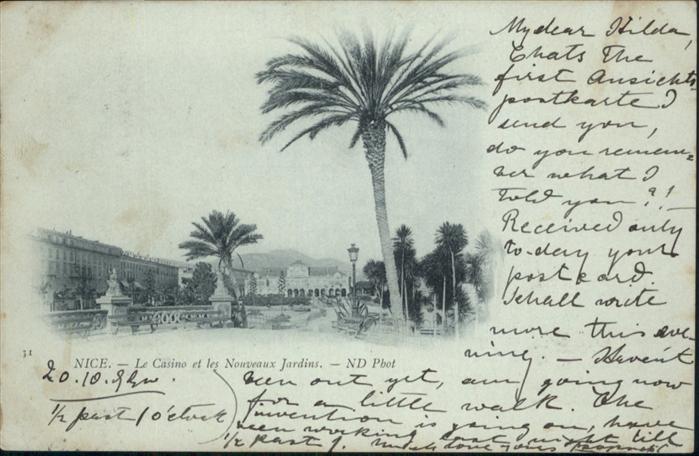 My dear Hilda,
Thats the
first Ansichts
postkarte I
send you,
do you remem=
ber what I
told you?! –
Received only
to-day your
postcard
shall write
more this eve-
ning. – Havent
31
NICE. — Le Casino et les Nouveaux Jardins. — ND Phot
20.10.
1/2 past 1 o'clock
been out yet, am going now
for a little walk. The
invention is going on, have
been working last night till
1/2 past 1.